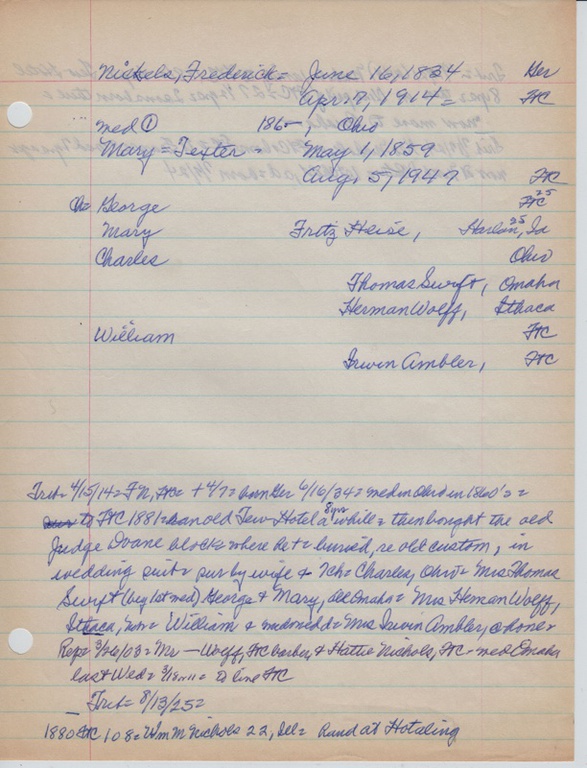 Nickels, Frederick = June 16, 1834 Ger
Apr. 7, 1914 = FtC
med ① 186-, Ohio
Mary = Texter - May 1, 1859
Aug. 5, 1947 FtC
Ch = George FtC 25
Mary Fritz Heise, Harlan, Ia 25
Charles Ohio
Thomas Swift, Omaha
Herman Wolff, Ithaca
William FtC
Irwin Ambler, FtC
Trib = 4/15/14 = FN, FtC = + 4/7 = born Ger 6/16/34 = med in Ohio in 1860's =
to FtC 1881 = ran old Hotel a while 8 yrs = then bought the old
Judge Doane block = where he + = buried, re old custom, in
wedding suit = sur by wife & 7ch = Charles, Ohio = Mrs Thomas
Swift (by 1st med) George & Mary, all Omaha = Mrs Heman Wolff,
Ithaca, = William & = Mrs Irwin Ambler, @ home =
Rep = 3/26/03 = Mr — Wolff, FtC barber, & Hattie Nichols, FtC - med Omaha
last Wed = = FtC
Trib = 8/13/25 =
1880 FtC 108 = Wm M Nichols 22, Ill = Rand at Hotaling